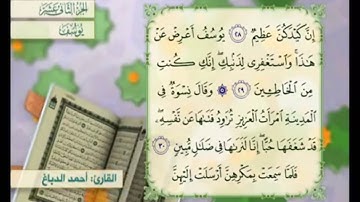 الجزء الثاني عشر
يوسف
إِنَّ كَيْدَكُنَّ عَظِيمٌ ۝٢٨ يُوسُفُ أَعْرِضْ عَنْ
هَٰذَا ۚ وَاسْتَغْفِرِي لِذَنبِكِ ۖ إِنَّكِ كُنتِ
مِنَ الْخَاطِئِينَ ۝٢٩ وَقَالَ نِسْوَةٌ فِي
الْمَدِينَةِ امْرَأَتُ الْعَزِيزِ تُرَاوِدُ فَتَاهَا عَن نَّفْسِهِ ۖ
قَدْ شَغَفَهَا حُبًّا ۖ إِنَّا لَنَرَاهَا فِي ضَلَالٍ مُّبِينٍ ۝٣٠
فَلَمَّا سَمِعَتْ بِمَكْرِهِنَّ أَرْسَلَتْ إِلَيْهِنَّ
القارئ: أحمد الدباغ